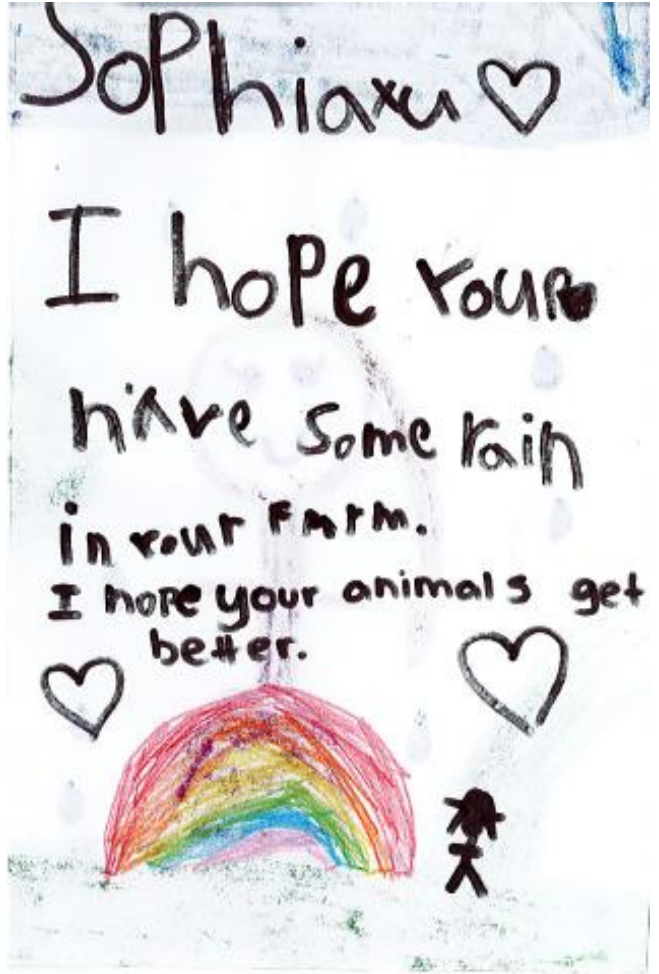 Sophiaxu
I hope your
have some rain
in your farm.
I hope your animals get
better.